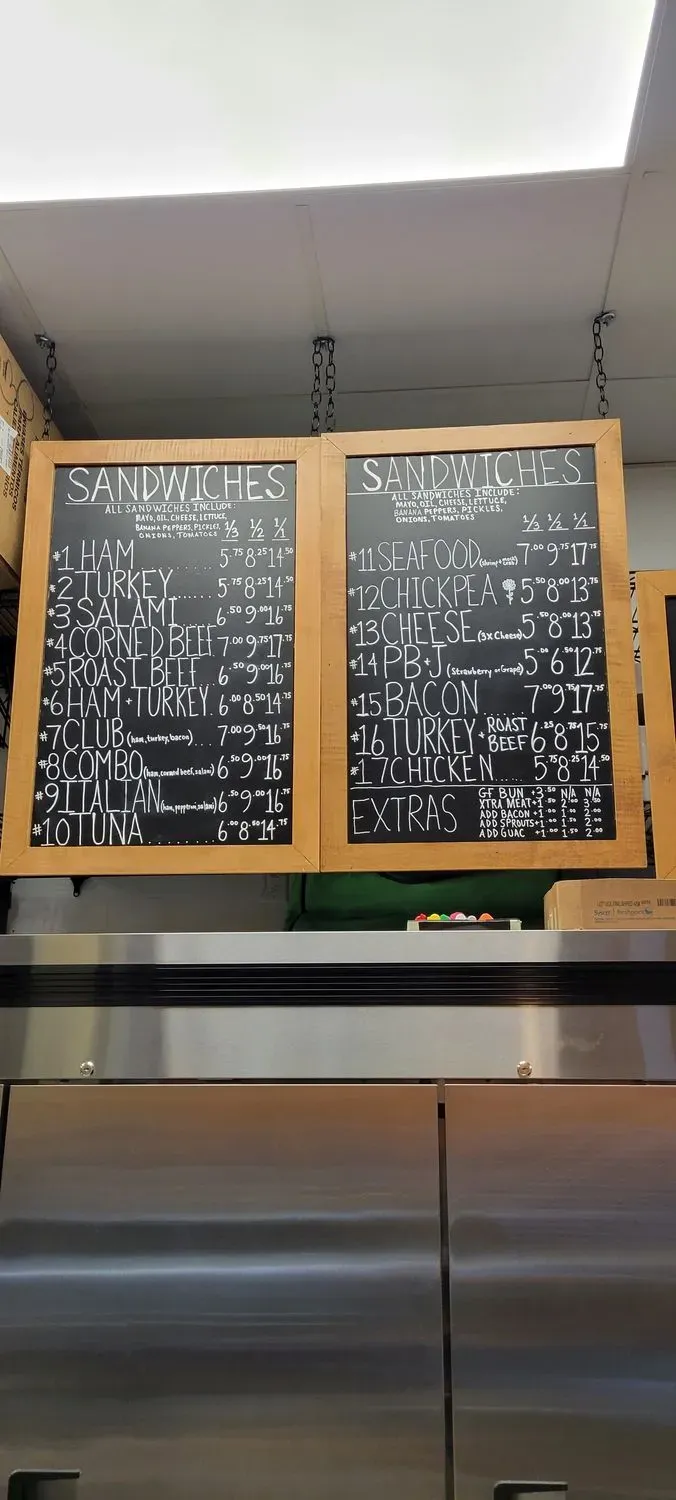 SANDWICHES
ALL SANDWICHES INCLUDE:
MAYO, OIL, CHEESE, LETTUCE,
BANANA PEPPERS, PICKLES,
ONIONS, TOMATOES
1/3 1/2 1/1
#1 HAM........ 5.75 8.25 14.50
#2 TURKEY..... 5.75 8.25 14.50
#3 SALAMI.... 6.50 9.00 16.75
#4 CORNED BEEF 7.00 9.75 17.75
#5 ROAST BEEF... 6.50 9.00 16.75
#6 HAM + TURKEY. 6.00 8.50 14.75
#7 CLUB (ham, turkey, bacon)... 7.00 9.50 16.75
#8 COMBO (ham, corned beef, salami) 6.50 9.00 16.75
#9 ITALIAN (ham, pepperoni, salami) 6.50 9.00 16.75
#10 TUNA....... 6.00 8.50 14.75
SANDWICHES
ALL SANDWICHES INCLUDE:
MAYO, OIL, CHEESE, LETTUCE,
BANANA PEPPERS, PICKLES,
ONIONS, TOMATOES
1/3 1/2 1/1
#11 SEAFOOD 7.00 9.75 17.75
#12 CHICKPEA 5.50 8.00 13.75
#13 CHEESE (3x Cheese) 5.50 8.00 13.75
#14 PB+J (Strawberry or Grape) 5.00 6.50 12.75
#15 BACON 7.00 9.75 17.75
#16 TURKEY + ROAST BEEF 6.25 8.75 15.75
#17 CHICKEN..... 5.75 8.25 14.50
EXTRAS
GF BUN +3.50 N/A N/A
XTRA MEAT +1.50 2.00 3.50
ADD BACON +1.00 1.50 2.00
ADD SPROUTS +1.00 1.50 2.00
ADD GUAC +1.00 1.50 2.00
Sysco | freshpoint